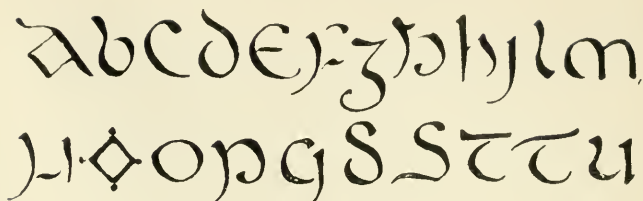 abCdEFʒhhjlm
NOOpqSSTTU